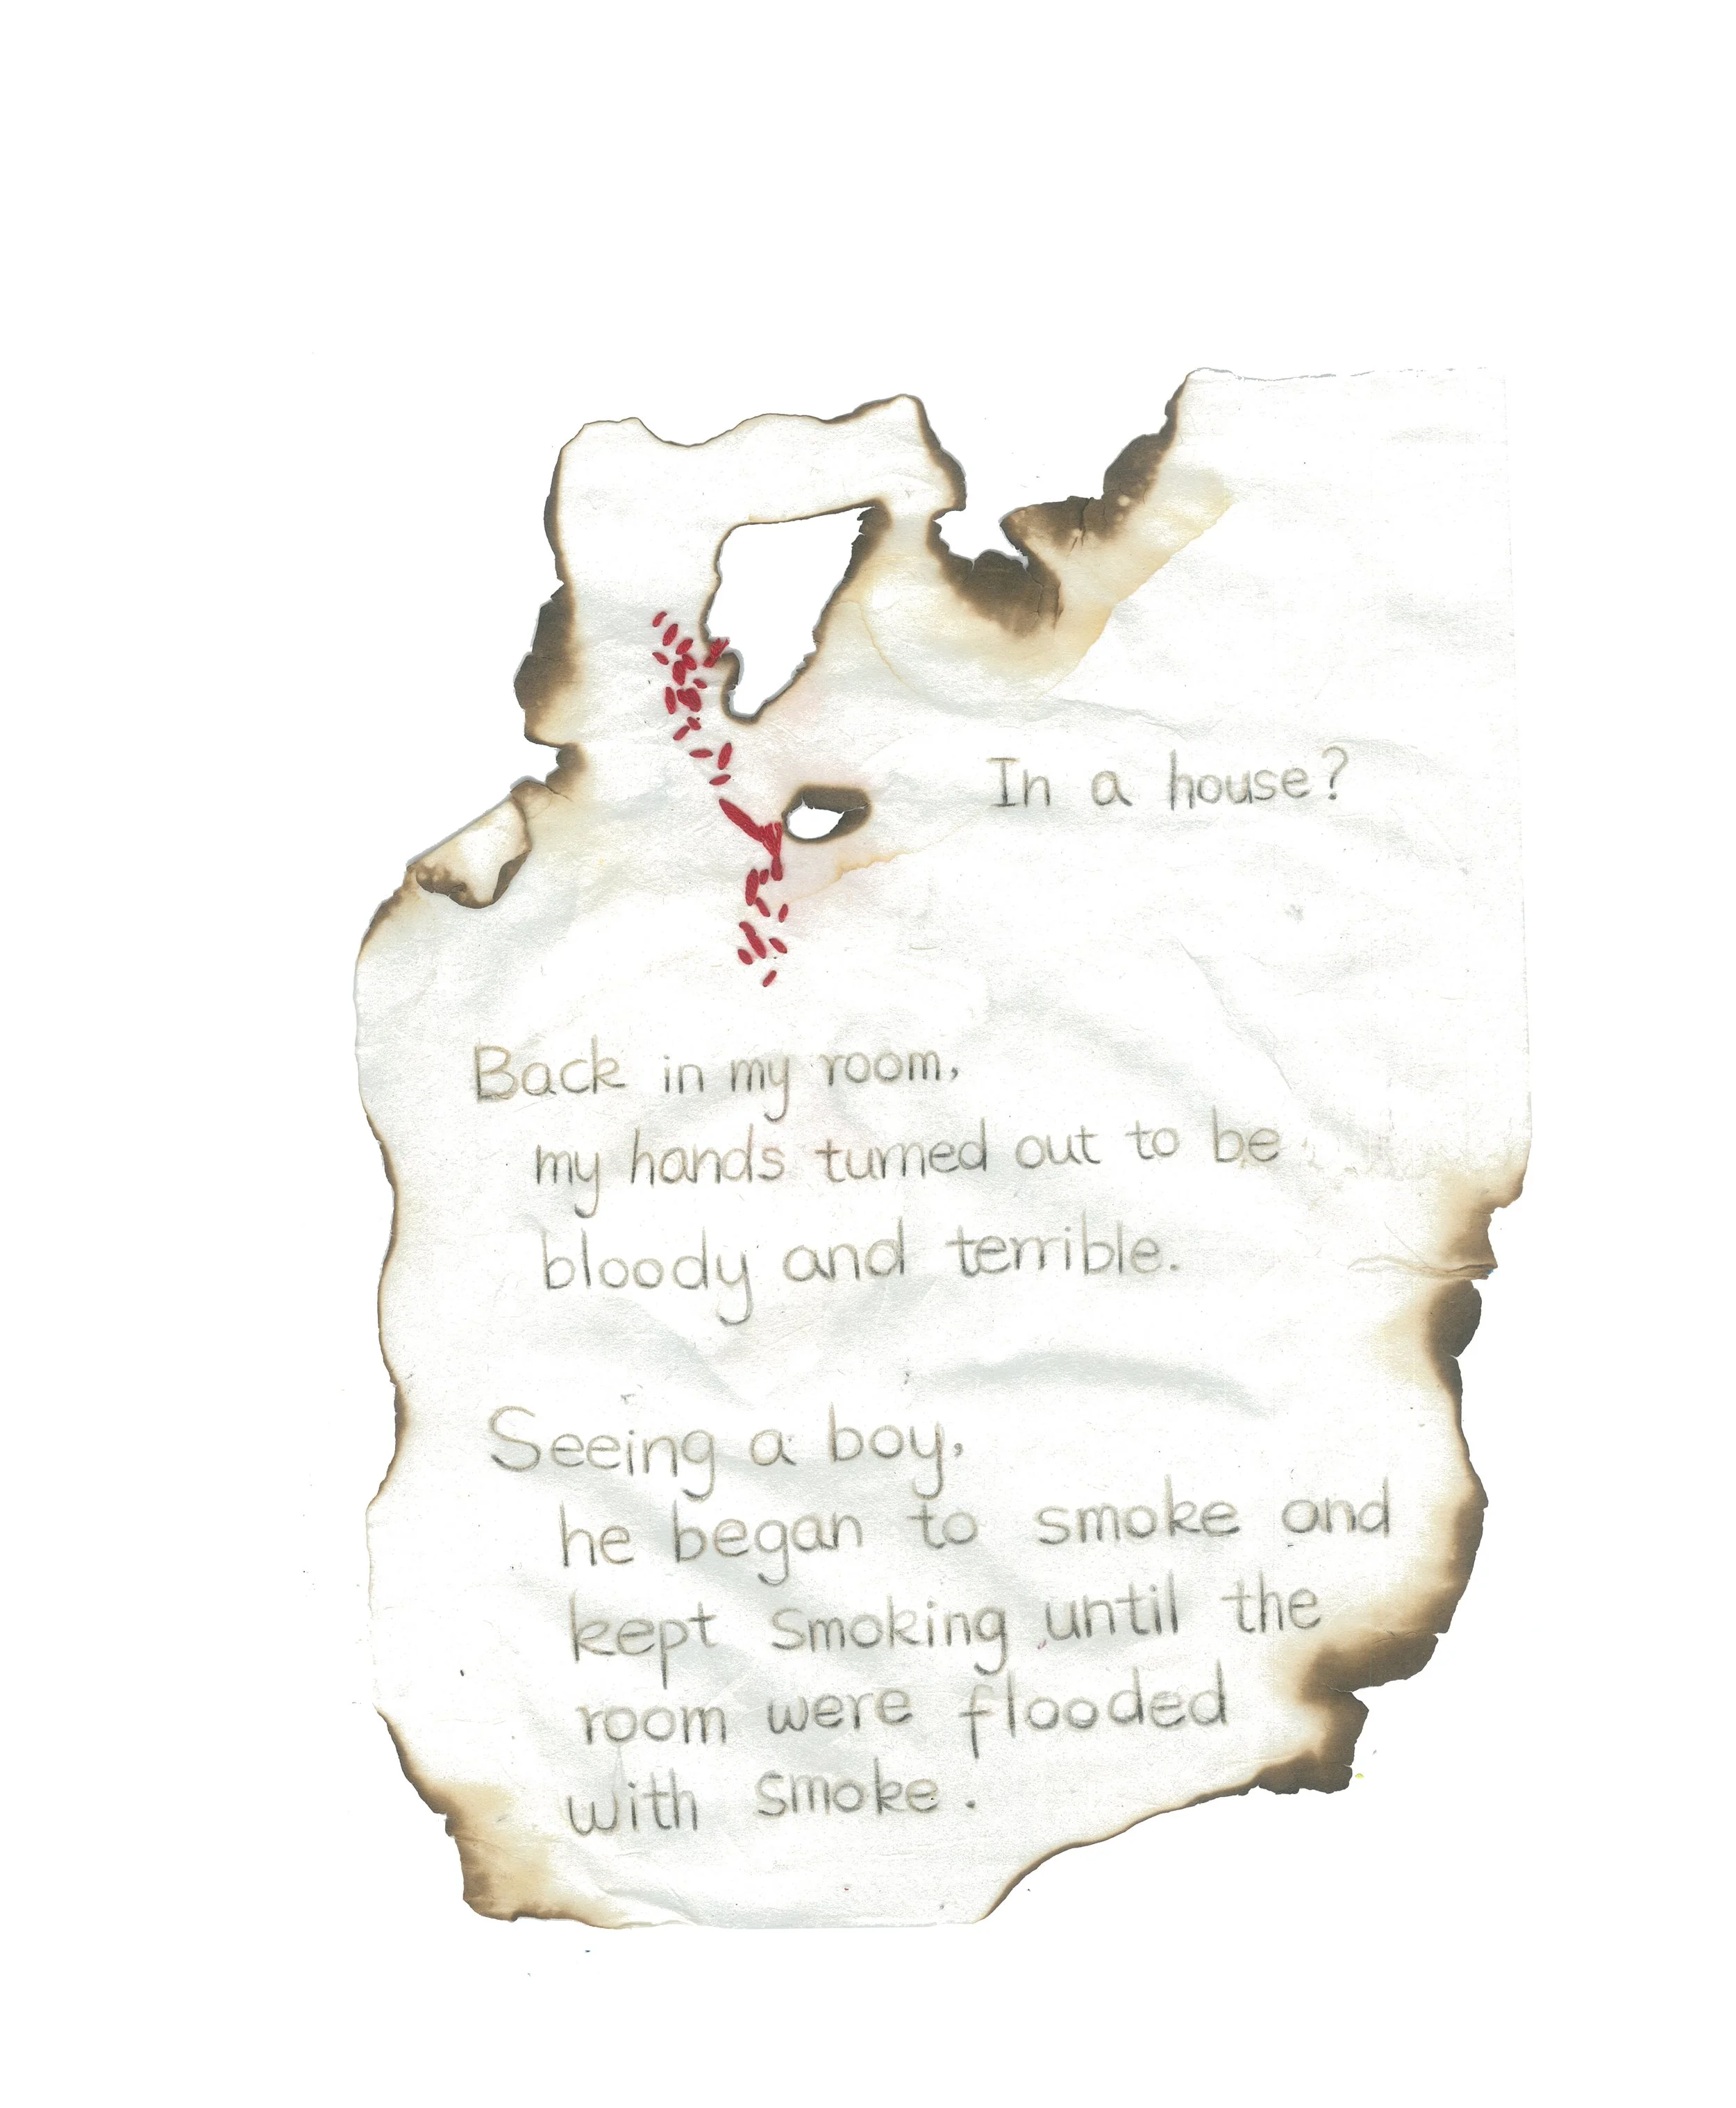 In a house?
Back in my room,
my hands turned out to be
bloody and terrible.
Seeing a boy,
he began to smoke and
kept smoking until the
room were flooded
with smoke.